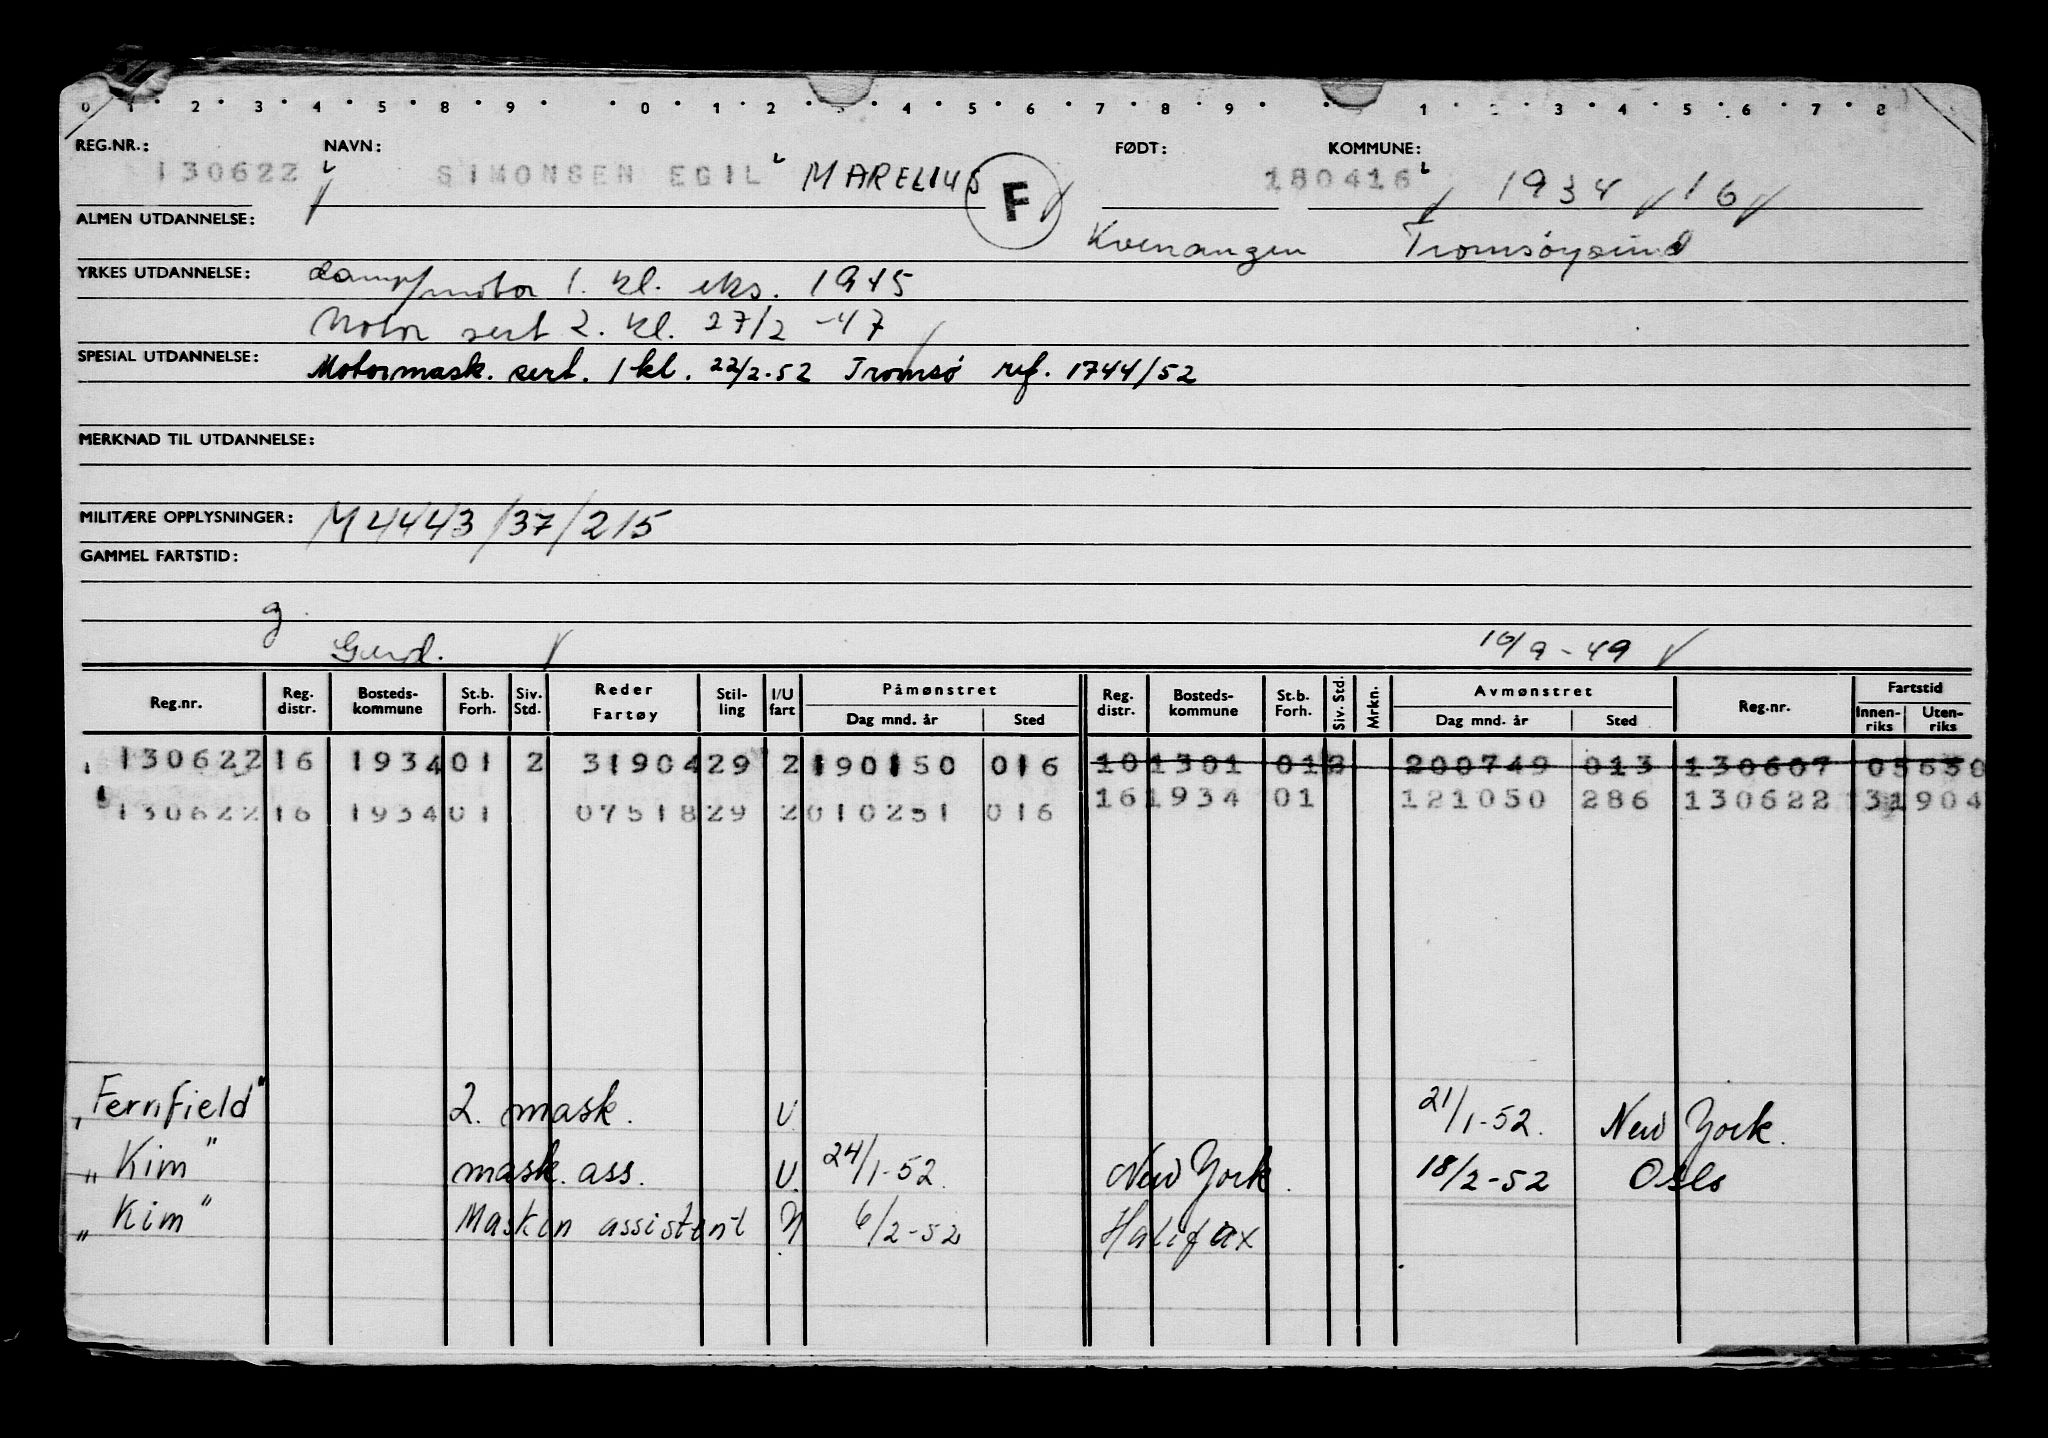 0 1 2 3 4 5 8 9 0 1 2 3 4 5 6 7 8 9 1 2 3 4 5 6 7 8
REG.NR.: NAVN: FØDT: KOMMUNE:
130622 SIMONSEN EGIL MARELIUS F 180416 1934 16
ALMEN UTDANNELSE: Kvenangen Tromsøysund
YRKES UTDANNELSE: dampmotor 1. kl. eks. 1945
Motor sert 2. kl. 27/2 -47
SPESIAL UTDANNELSE: Motormask. sert. 1 kl. 22/2-52 Tromsø ref. 1744/52
MERKNAD TIL UTDANNELSE:
MILITÆRE OPPLYSNINGER: M 4443/37/215
GAMMEL FARTSTID:
g
Gerd. 16/9-49
Reg.nr. Reg. distr. Bosteds-kommune St.b. Forh. Siv. Std. Reder Fartøy Stil-ling I/U fart Påmønstret Dag mnd. år Sted Reg. distr. Bosteds-kommune St.b. Forh. Siv. Std. Mrkn. Avmønstret Dag mnd. år Sted Reg.nr. Fartstid Innen-riks Uten-riks
130622 16 1934 01 2 31904 29 2 190150 016 10 1301 01 2 200749 013 130607 05630
16 1934 01 121050 286 130622 31904
130622 16 1934 01 07518 29 2 010251 016
"Fernfield" 2. mask. U 21/1-52. New York.
"Kim" mask. ass. U. 24/1-52. New York. 18/2-52 Oslo
"Kim" Maskin assistent 6/2-52 Halifax